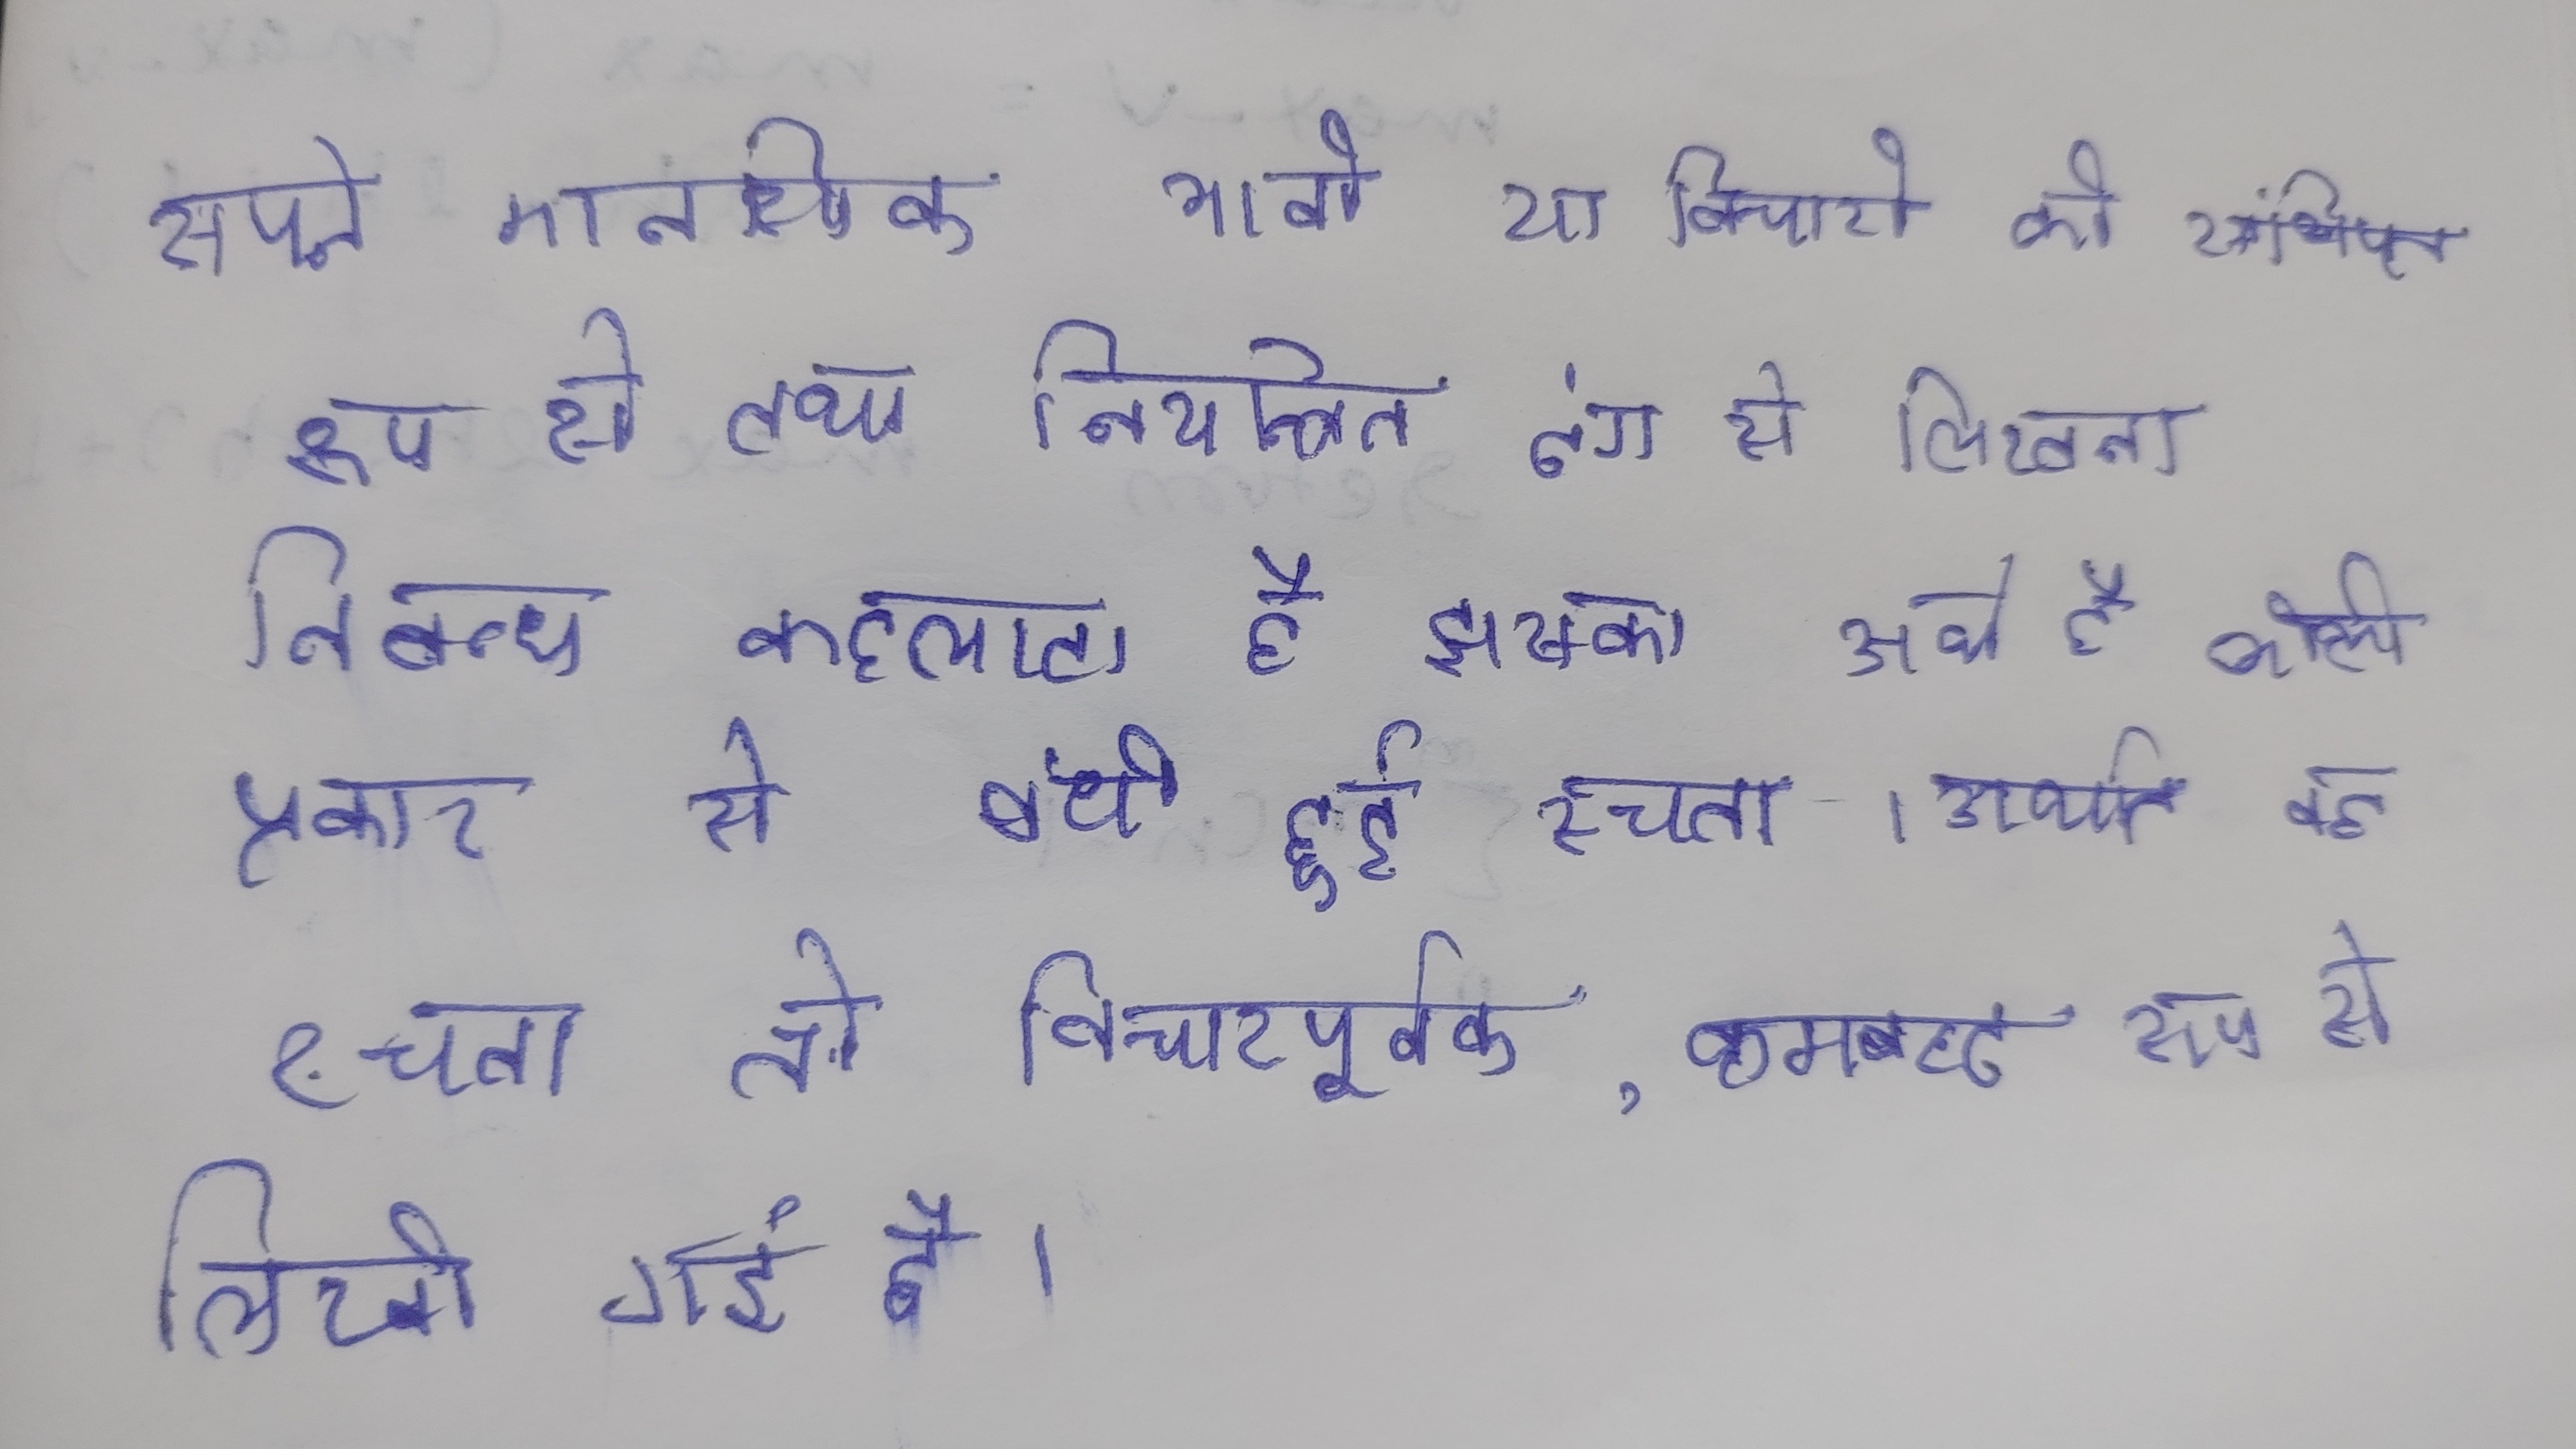 सपने मानसिक भावो या विचारो को संक्षिप्त
रूप से तथा नियन्त्रित ढंग से लिखना
निबन्ध कहलाता है इसका अर्थ है
प्रकार से बंधी हुई रचना । अर्थात वह
रचना जो विचारपूर्वक , क्रमबद्ध रूप से
लिखी गई है ।